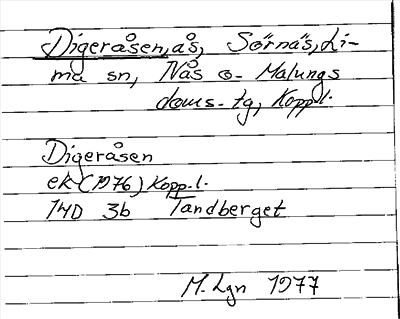 Digeråsen, ås, Sörnäs, Li-
ma sn, Nås o. Malungs
doms. tg, Kopp.l.
Digeråsen
ek (1976) Kopp.l.
14D 3b Tandberget
M. Lgn 1977